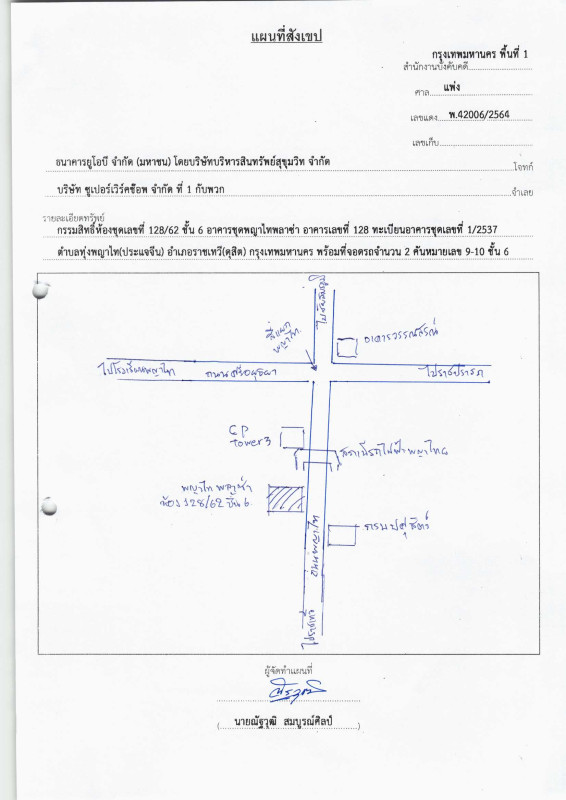 แผนที่สังเขป
กรุงเทพมหานคร พื้นที่ 1
สำนักงานบังคับคดี
ศาล แพ่ง
เลขแดง พ.42006/2564
เลขเก็บ
ธนาคารยูโอบี จำกัด (มหาชน) โดยบริษัทบริหารสินทรัพย์สุขุมวิท จำกัด โจทก์
บริษัท ซูเปอร์เวิร์คช็อพ จำกัด ที่ 1 กับพวก จำเลย
รายละเอียดทรัพย์
กรรมสิทธิ์ห้องชุดเลขที่ 128/62 ชั้น 6 อาคารชุดพญาไทพลาซ่า อาคารเลขที่ 128 ทะเบียนอาคารชุดเลขที่ 1/2537
ตำบลทุ่งพญาไท(ประแจจีน) อำเภอราชเทวี(ดุสิต) กรุงเทพมหานคร พร้อมที่จอดรถจำนวน 2 คันหมายเลข 9-10 ชั้น 6
สี่แยก
พญาไท
อาคารวรรณสรณ์
ถนนศรีอยุธยา
ไปราชปรารภ
CP
Tower3
สถานีรถไฟฟ้าพญาไท
พญาไท พลาซ่า
ห้อง 128/62 ชั้น 6
กรมปศุสัตว์
ถนนพญาไท
ไปราชเทวี
ผู้จัดทำแผนที่
(นายณัฐวุฒิ สมบูรณ์ศิลป์)